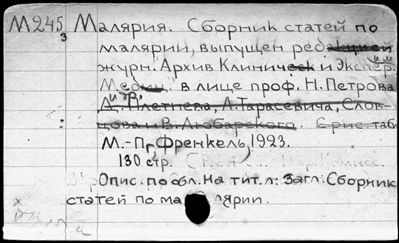 М245₃ Малярия. Сборник статей по
малярии, выпущен редакцией
журн. Архив Клинич. и Экспер.
Мед. в лице проф. Н. Петрова
и др.
Д. Плетнева, Л. Тарасевича, Слов-
цова и В. Любарского. С рис. таб.
М.-Пг, Френкель, 1923.
130 стр.
Опис. по обл. На тит. л: Загл: Сборник
статей по малярии.